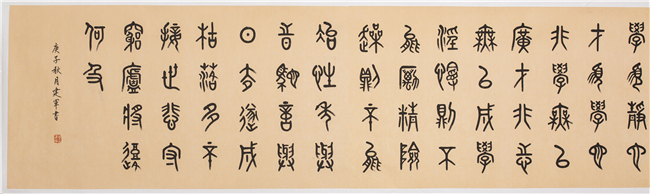 學須靜也
才須學也
非學無以
廣才非志
無以成學
淫慢則不
能勵精險
躁則不能
冶性年與
時馳意與
日去遂成
枯落多不
接世悲守
窮廬將復
何及
庚子秋月建軍書